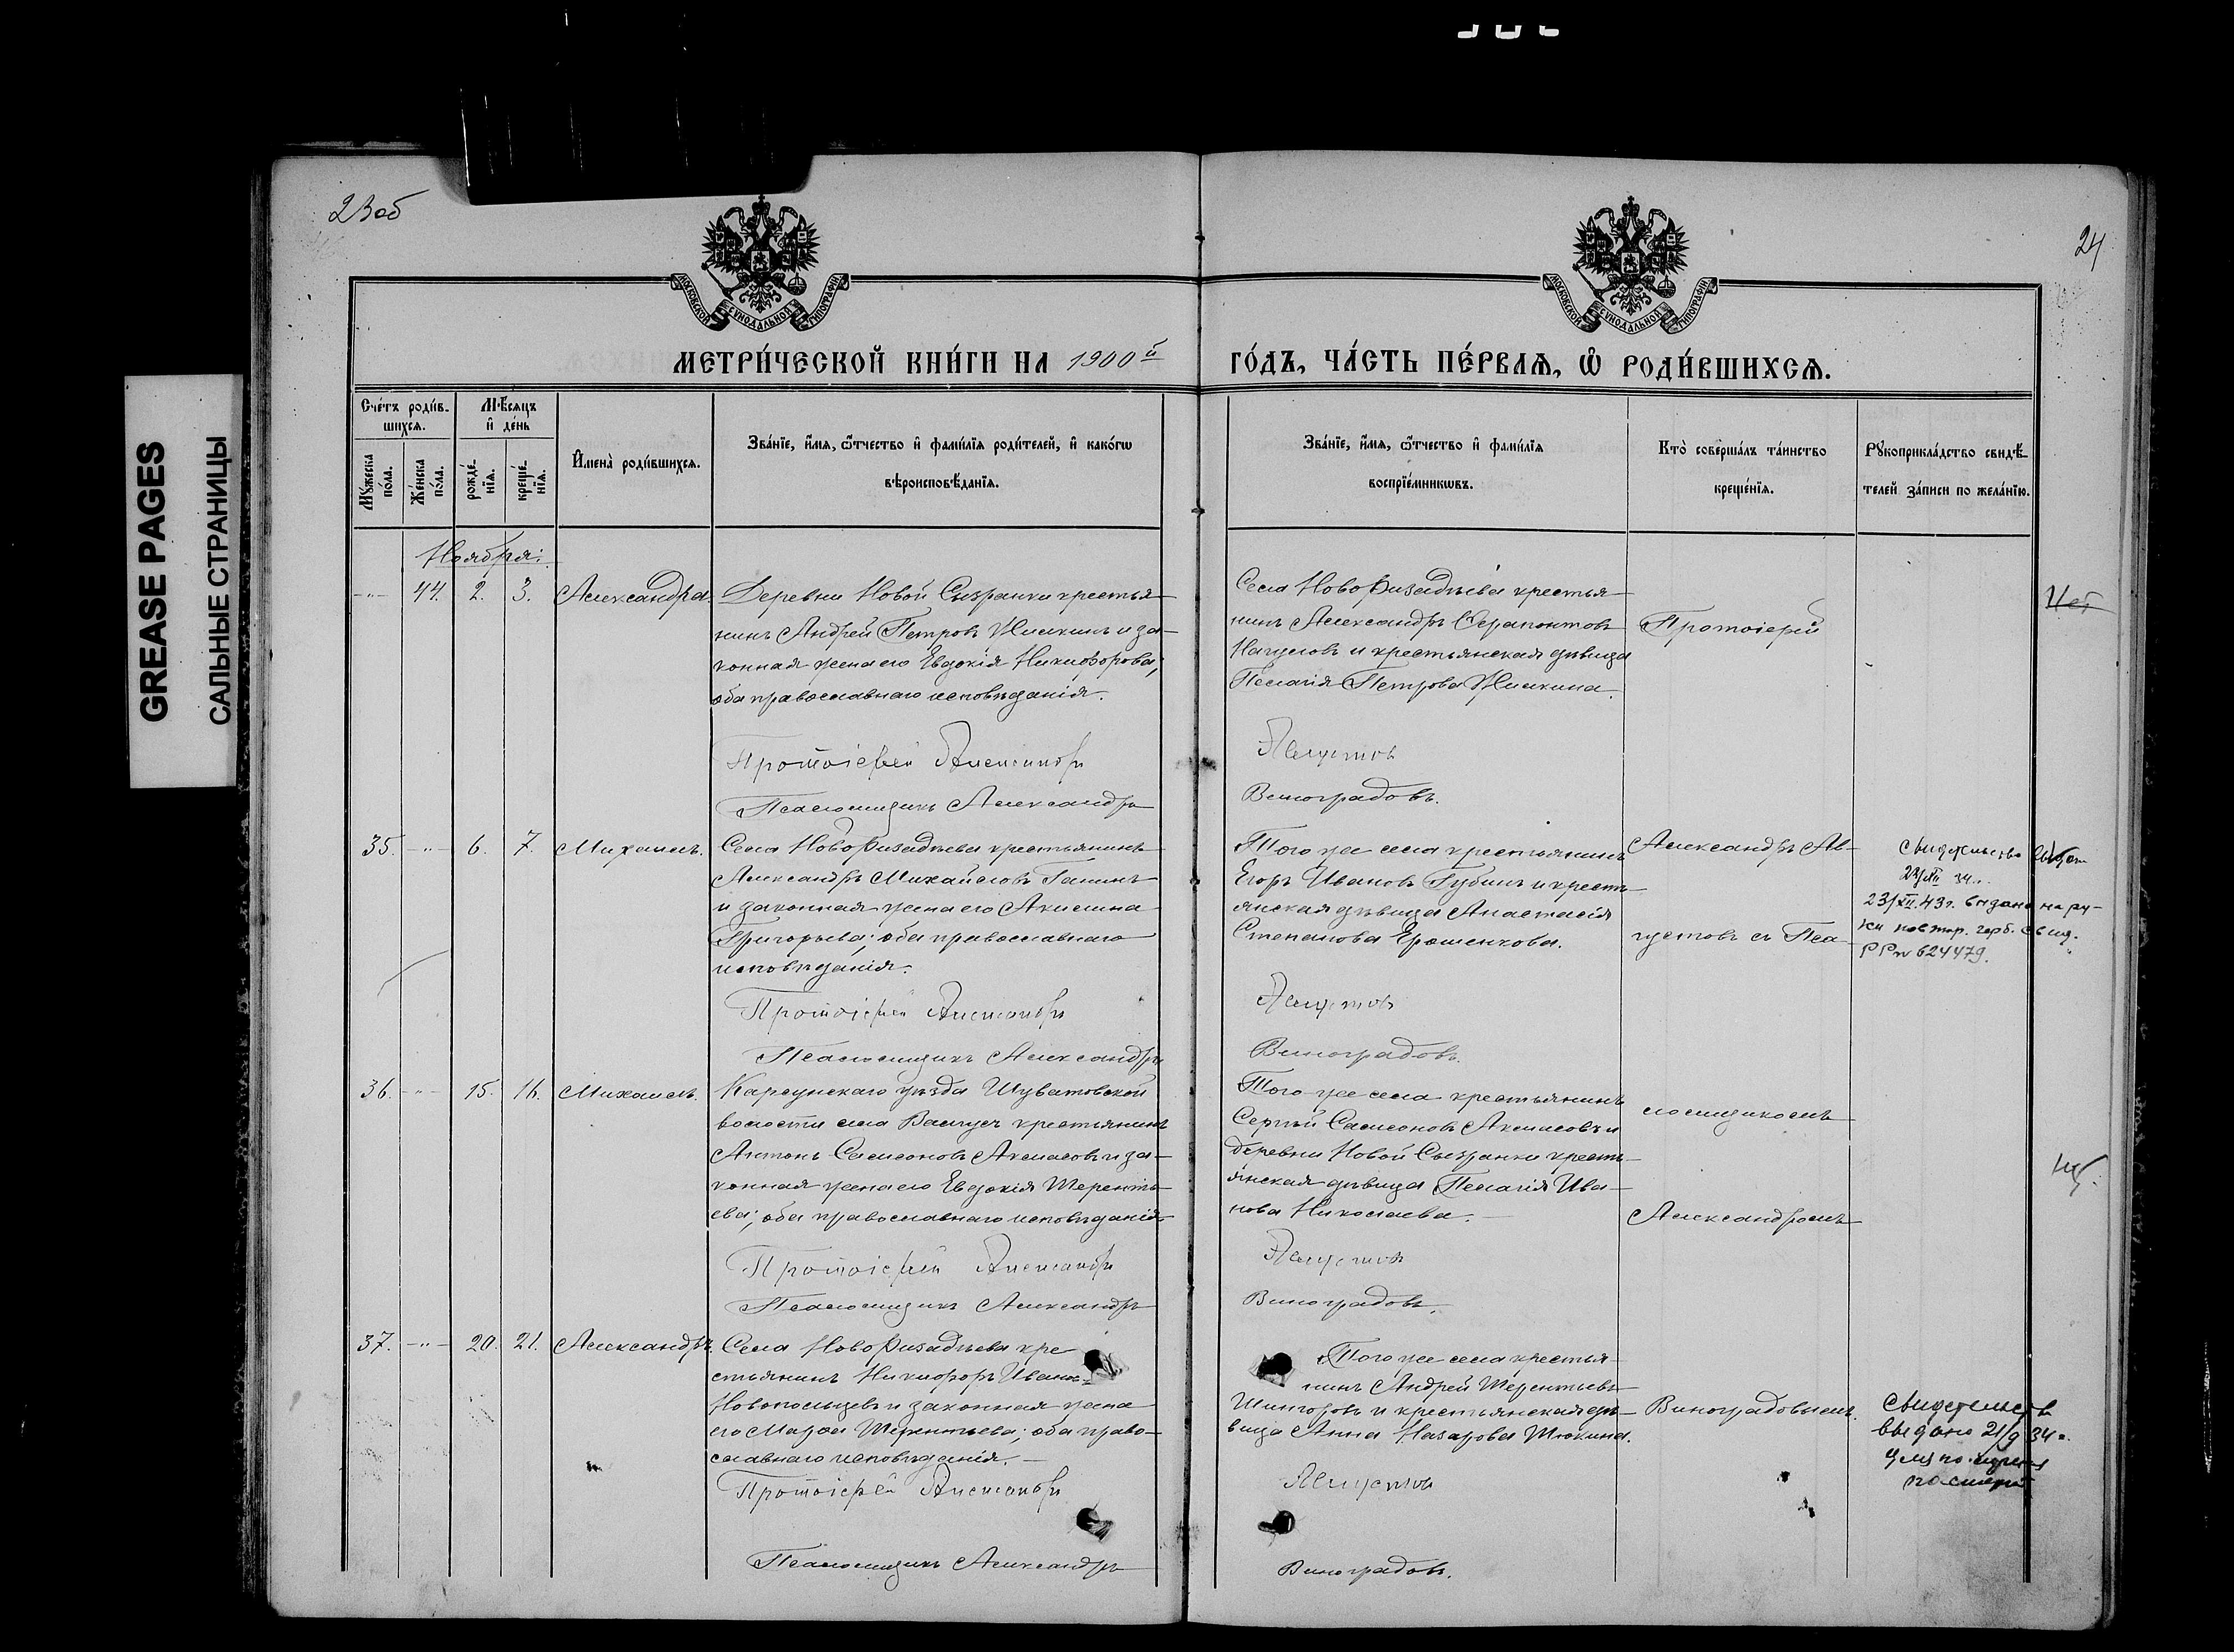 GREASE PAGES
САЛЬНЫЕ СТРАНИЦЫ
23об
24
МОСКОВСКОЙ СѴНОДАЛЬНОЙ ТИПОГРАФІИ
МОСКОВСКОЙ СѴНОДАЛЬНОЙ ТИПОГРАФІИ
МЕТРИ́ЧЕСКОЙ КНИ́ГИ НА 1900й
ГО́ДЪ, ЧА́СТЬ ПЕ́РВАѦ, Ѡ҆ РОДИ́ВШИХСѦ.
Сче́тъ роди́в-
шихсѧ.
Мѣ́сѧцъ
и҆ де́нь
Мꙋ́жеска
по́ла.
Же́нска
по́ла.
рожде́-
нїѧ.
креще́-
нїѧ.
И҆мена̀ роди́вшихсѧ.
Зва́нїе, и҆́мѧ, ѻ҆́тчество и҆ фами́лїѧ роди́телей, и҆ како́гѡ
вѣроисповѣ́данїѧ.
Зва́нїе, и҆́мѧ, ѻ҆́тчество и҆ фами́лїѧ
воспрїе́мникѡвъ.
Кто̀ соверша́лъ та́инство
креще́нїѧ.
Рꙋкоприкла́дство свидѣ́-
телей за́писи по жела́нїю.
Ноября:
-"- 44. 2. 3. Александра.
Деревни Новой Сызранки крестья-
нинъ Андрей Петровъ Жилкинъ и за-
конная жена его Евдокія Никифорова;
оба православнаго исповѣданія.
Протоіерей Александръ
Псаломщикъ Александръ
Села Новофизадѣева крестья-
нинъ Александръ Серапонтовъ
и крестьянская дѣвица
Пелагія Петрова Жилкина.
Августовъ
Виноградовъ.
Протоіерей
35. -"- 6. 7. Михаилъ.
Села Новофизадѣева крестьянинъ
Александръ Михайловъ Ганинъ
и законная жена его Акилина
Григорьева; оба православнаго
исповѣданія.
Протоіерей Александръ
Псаломщикъ Александръ
Того же села крестьянинъ
Егоръ Ивановъ Губинъ и кресть-
янская дѣвица Анастасія
Степанова Ерошенкова.
Августовъ
Виноградовъ.
Александръ Ав-
густовъ съ Пса-
свидетельство выдан
23/XII 34г.
23/XII.43г. выдано на ру-
ки повтор. герб. свид.
РР № 624479.
36. -"- 15. 16. Михаилъ.
Карсунскаго уѣзда Шуватовской
волости села крестьянинъ
Антонъ Самсоновъ Аксасовъ и за-
конная жена его Евдокія Терентье-
ва; оба православнаго исповѣданія
Протоіерей Александръ
Псаломщикъ Александръ
Того же села крестьянинъ
Сергѣй Самсоновъ и
деревни Новой Сызранки кресть-
янская дѣвица Пелагія Ива-
нова Николаева.
Августовъ
Виноградовъ.
ломщикомъ
Александромъ
37. -"- 20. 21. Александръ.
Села Новофизадѣева кре
стьянинъ Никифоръ Иванъ
Новопольцевъ и законная жена
его Марѳа Терентьева; оба право-
славнаго исповѣданія.
Протоіерей Александръ
Псаломщикъ Александръ
Того же села крестья-
нинъ Андрей Терентьевъ
и крестьянская дѣ-
вица Анна Назарова Тюкина.
Августовъ
Виноградовъ.
Виноградовымъ.
Свидетельств
выдано 21/9 34г.